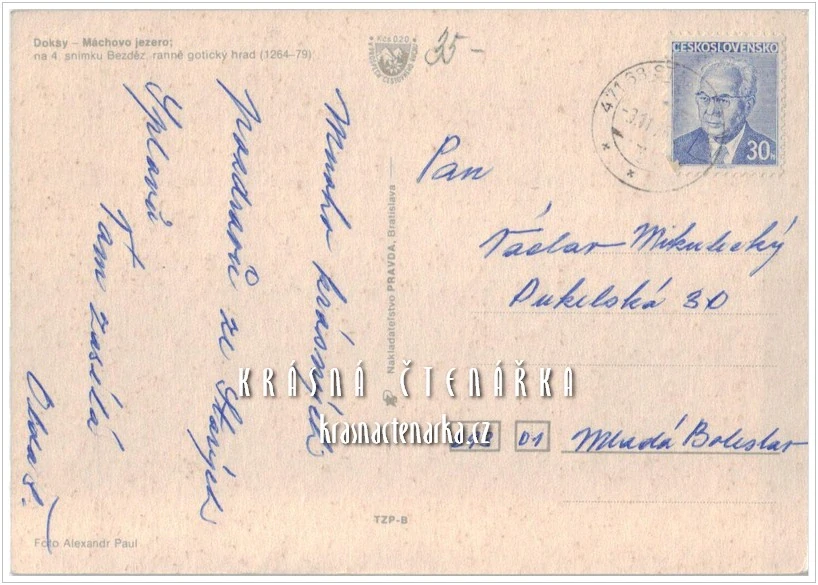 Doksy – Máchovo jezero;
na 4. snímku Bezděz, ranně gotický hrad (1264–79)
Kčs 0,20
35-
ČESKOSLOVENSKO
30h
471 63
Mnoho krásných
pozdravů ze Starých
Splavů
Vám zasílá
Pan
Václav Mikulecký
Dukelská 30
01 Mladá Boleslav
Nakladatelstvo PRAVDA, Bratislava
KRÁSNÁ ČTENÁŘKA
krasnactenarka.cz
TZP-B
Foto Alexandr Paul